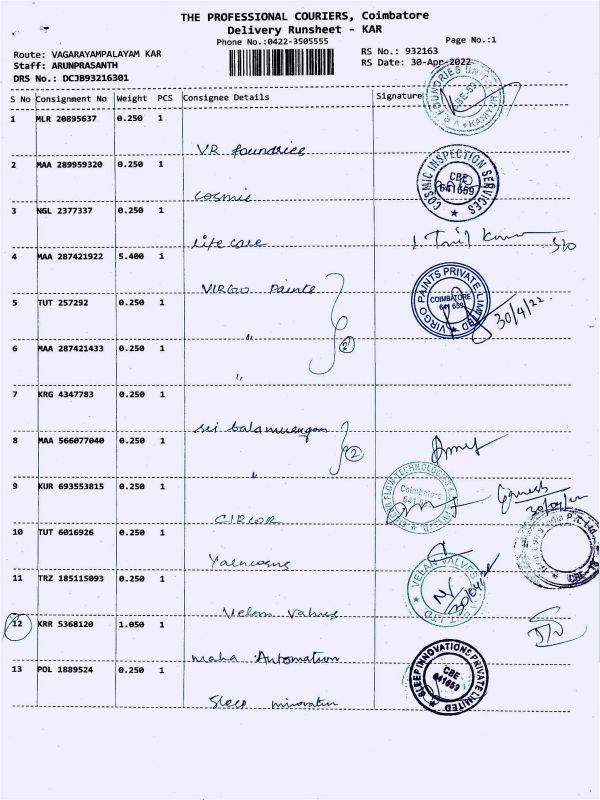 THE PROFESSIONAL COURIERS, Coimbatore
Delivery Runsheet - KAR
Phone No.:0422-3505555
Page No.:1
Route: VAGARAYAMPALAYAM KAR
RS No.: 932163
Staff: ARUNPRASANTH
RS Date: 30-Apr-2022
DRS No.: DCJB93216301
S No Consignment No Weight PCS Consignee Details Signature
1 MLR 20895637 0.250 1
VR foundries
2 MAA 289959320 0.250 1
cosmic
COSMIC INSPECTION SERVICES
CBE
641 659
3 NGL 2377337 0.250 1
life care
4 MAA 287421922 5.400 1
VIRGO Paints
VIRGO PAINTS PRIVATE LIMITED
COIMBATORE
641 659
30/4/22
5 TUT 257292 0.250 1
"
6 MAA 287421433 0.250 1
"
7 KRG 4347783 0.250 1
sri balamurugan
8 MAA 566077040 0.250 1
"
2
9 KUR 693553815 0.250 1
CIRCOR
Coimbatore
Ganesh
10 TUT 6016926 0.250 1
11 TRZ 185115093 0.250 1
Velan Valves
VELAN VALVES
12 KRR 5368120 1.050 1
maha Automation
13 POL 1889524 0.250 1
Sleep innovation
SLEEP INNOVATIONS PRIVATE LIMITED
CBE
641659